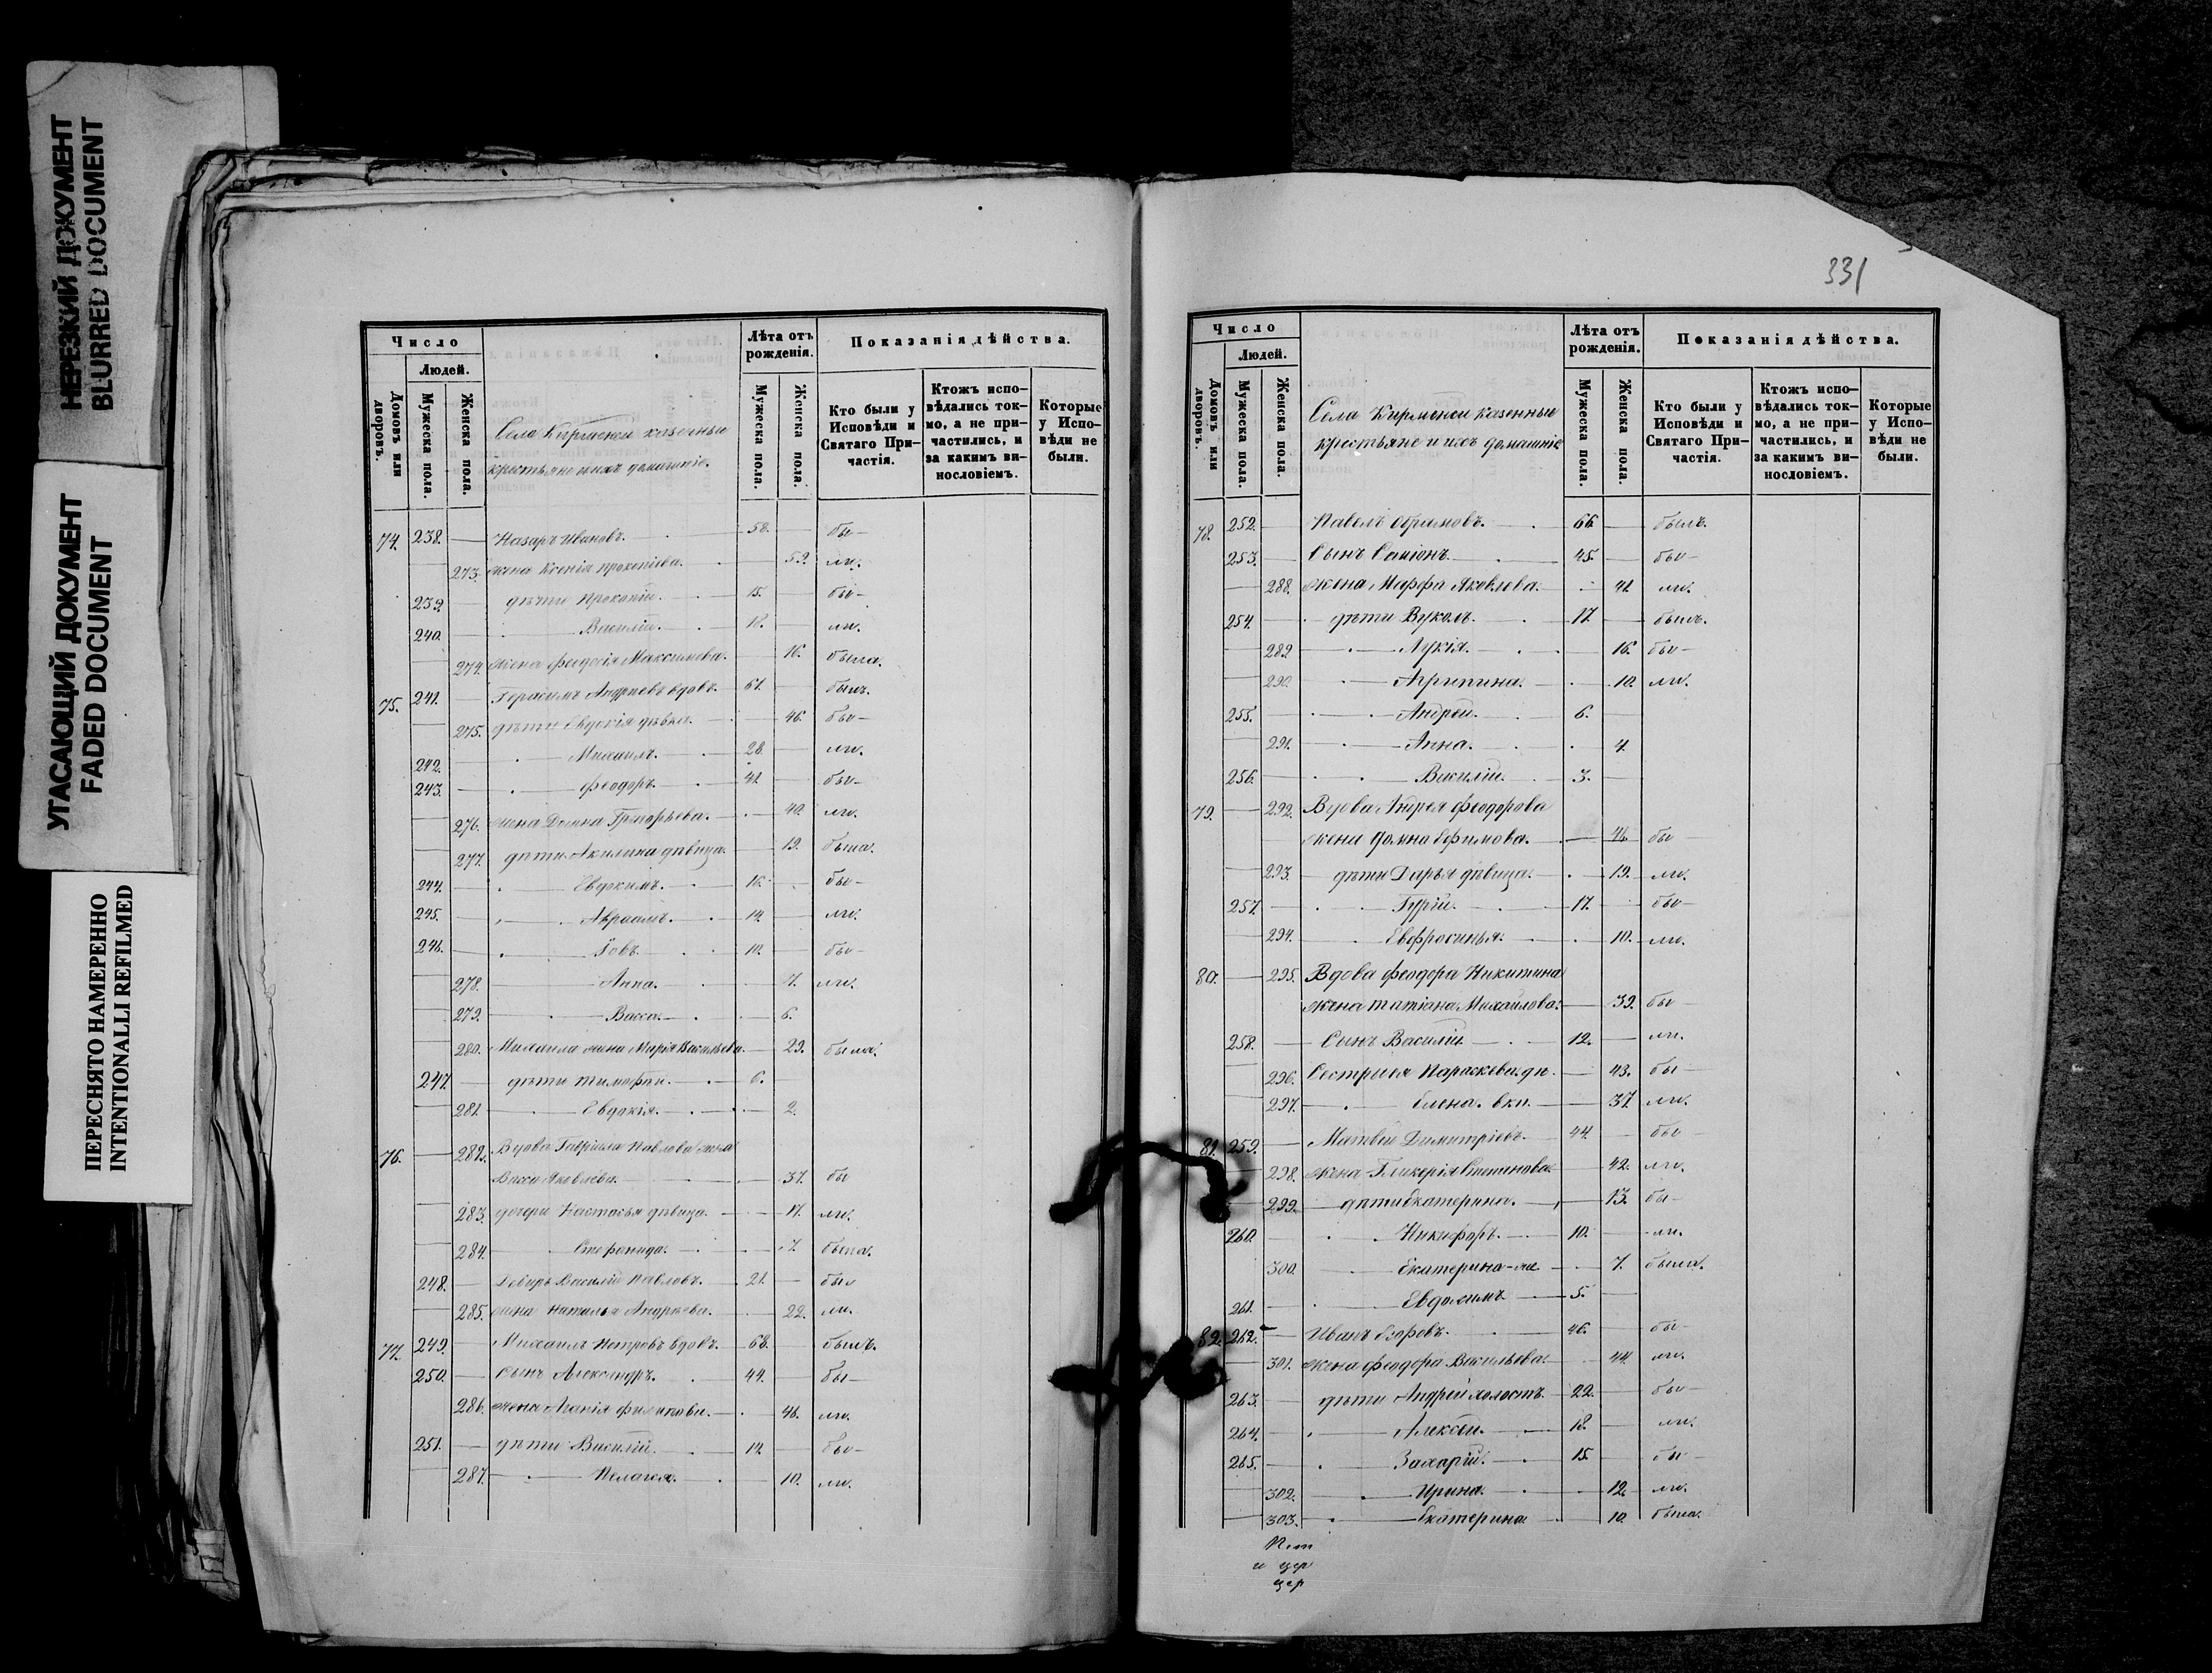 НЕРЕЗКИЙ ДОКУМЕНТ
BLURRED DOCUMENT
УГАСАЮЩИЙ ДОКУМЕНТ
FADED DOCUMENT
ПЕРЕСНЯТО НАМЕРЕННО
INTENTIONALLI REFILMED
Число
Людей.
Домовъ или дворовъ.
Мужеска пола.
Женска пола.
Села казенные
крестьяне и ихъ домашніе.
Лѣта отъ рожденія.
Мужеска пола.
Женска пола.
Показанія дѣйства.
Кто были у Исповѣди и Святаго Причастія.
Ктожъ исповѣдались токмо, а не причастились, и за какимъ винословіемъ.
Которые у Исповѣди не были.
74. 238. Назаръ Ивановъ. 58. бы-
273. жена Ксенія Прокопіева. 52. ли.
239. дѣти Прокопій. 15. бы-
240. Василій. 18. ли.
274. жена Феодосія Максимова. 18. была.
75. 241. Герасимъ Андреевъ вдовъ. 61. былъ.
275. дѣти Евдокія дѣвка. 46. бы-
242. Михаилъ. 28. ли.
243. Феодоръ. 41. бы-
276. жена Домна Григорьева. 40. ли.
277. дѣти Акилина дѣвица. 19. была.
244. Евдокимъ. 16. бы-
245. Авраамъ. 14. ли.
246. Іовъ. 10. бы-
278. Анна. ли.
279. Васса. 6.
280. Михаила жена Марія Васильева. 29. была.
247. дѣти Тимофей. 6.
281. Евдокія. 2.
76. 282. Вдова Гавріила Павлова жена
Васса Яковлева. 37. бы
283. дочери Настасья дѣвица. 17. ли.
284. Степонида. 7. была.
248. Деверь Василій Павловъ. 21. бы
285. жена Наталья Андреева. 22. ли.
77. 249. Михаилъ Петровъ вдовъ. 68. былъ.
250. Сынъ Александръ. 44. бы-
286. жена Филипова. 46. ли.
251. дѣти Василій. 14. бы-
287. Пелагея. 10. ли.
331
Число
Людей.
Домовъ или дворовъ.
Мужеска пола.
Женска пола.
Села казенные
крестьяне и ихъ домашніе
Лѣта отъ рожденія.
Мужеска пола.
Женска пола.
Показанія дѣйства.
Кто были у Исповѣди и Святаго Причастія.
Ктожъ исповѣдались токмо, а не причастились, и за какимъ винословіемъ.
Которые у Исповѣди не были.
78. 252. Павелъ 66. былъ.
253. Сынъ 45. бы-
288. жена Марфа Яковлева. 41. ли.
254. дѣти Вуколъ. 17. былъ.
289. Лукія. 16. бы-
290. Агрипина. 10. ли.
255. Андрей. 6.
291. Анна. 4.
256. Василій. 3.
79. 292. Вдова Андрея Феодорова
жена Домна Ефимова. 46. бы
293. дѣти Дарья дѣвица. 19. ли.
257. Гурій. 17. бы-
294. Евфросинья. 10. ли.
80. 295. Вдова Феодора Никитина
жена Татіана Михайлова. 39. бы
258. Сынъ Василій 12. ли.
296. Сестры ея Параскева дѣ. 43. бы
297. Елена. 37. ли.
81. 259. Матвей Димитріевъ. 44. бы
298. жена Гликерія Степанова. 42. ли.
299. дѣти Екатерина. 13. бы
260. Никифоръ. 10. ли.
300. Екатерина 7. была.
261. Евдокимъ. 5.
82. 262. Иванъ Егоровъ. 46. бы
301. жена Феодора Васильева. 44. ли.
263. дѣти Андрей холостъ 22. бы-
264. Алексѣй. 18. ли.
265. Захарій. 15. бы
302. Ирина. 12. ли.
303. Екатерина 10. была.
и цер
цер